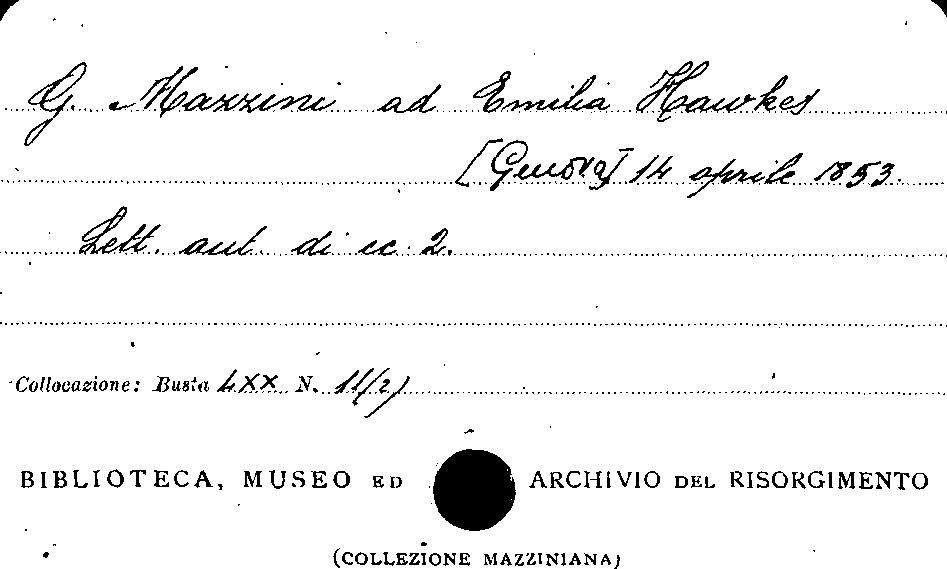 G. Mazzini ad Emilia Hawkes
[Genova] 14 aprile 1853.
Lett. aut. di cc. 2.
Collocazione: Busta LXX N. 11(2)
BIBLIOTECA, MUSEO ED ARCHIVIO DEL RISORGIMENTO
(COLLEZIONE MAZZINIANA)